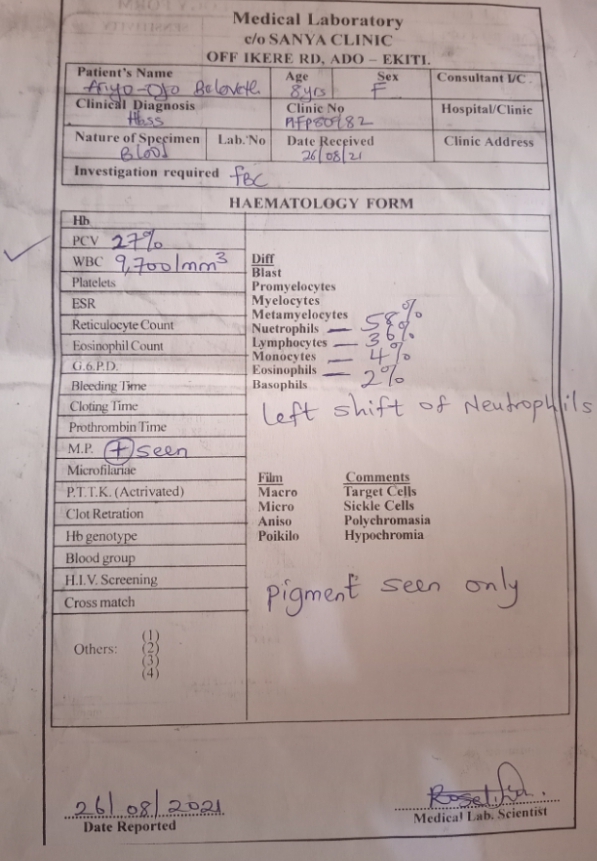 Medical Laboratory
c/o SANYA CLINIC
OFF IKERE RD, ADO – EKITI.
Patient's Name Age Sex Consultant I/C.
Ariyo-Ojo 8yrs F
Clinical Diagnosis Clinic No Hospital/Clinic
Nature of Specimen Lab. No Date Received Clinic Address
Blood 26/08/21
Investigation required FBC
HAEMATOLOGY FORM
Hb
PCV 27%
WBC 9,700/mm³
Platelets
ESR
Reticulocyte Count
Eosinophil Count
G.6.P.D.
Bleeding Time
Cloting Time
Prothrombin Time
M.P. + seen
Microfilariae
P.T.T.K. (Actrivated)
Clot Retration
Hb genotype
Blood group
H.I.V. Screening
Cross match
Others: (1)
(2)
(3)
(4)
Diff
Blast
Promyelocytes
Myelocytes
Metamyelocytes
Nuetrophils — 58%
Lymphocytes — 36%
Monocytes — 4%
Eosinophils — 2%
Basophils
Left shift of Neutrophils
Film Comments
Macro Target Cells
Micro Sickle Cells
Aniso Polychromasia
Poikilo Hypochromia
Pigment seen only
26/08/2021
Date Reported Medical Lab. Scientist